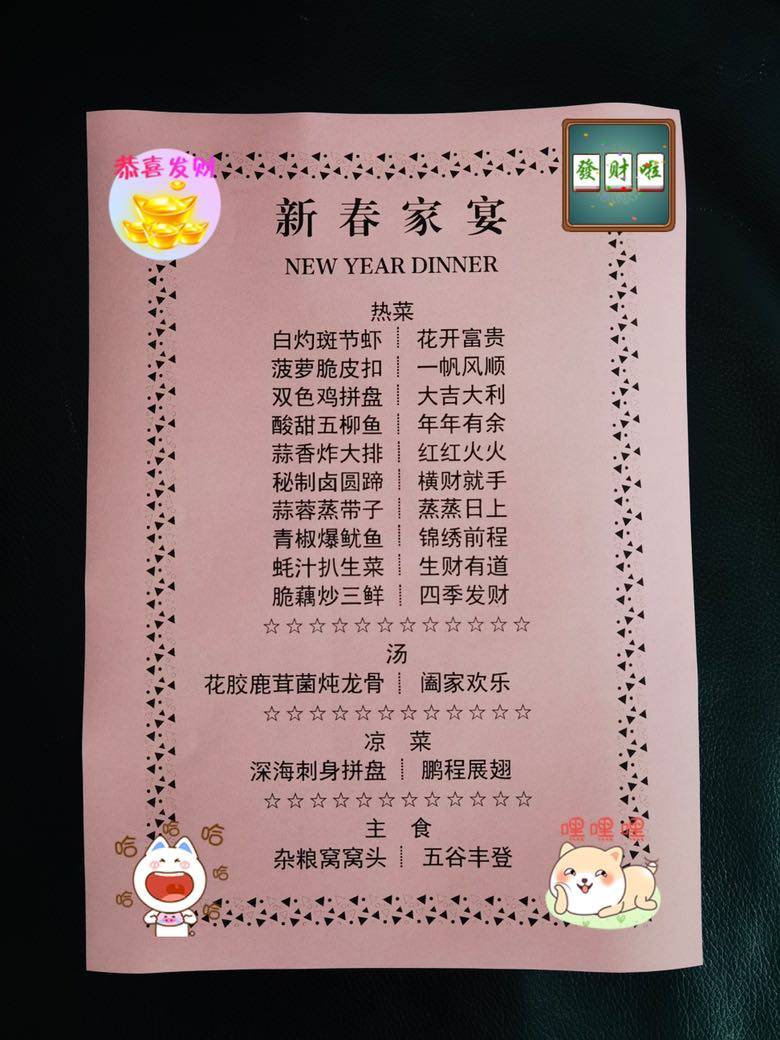 恭喜发财
發财啦
新春家宴
NEW YEAR DINNER
热菜
白灼斑节虾 花开富贵
菠萝脆皮扣 一帆风顺
双色鸡拼盘 大吉大利
酸甜五柳鱼 年年有余
蒜香炸大排 红红火火
秘制卤圆蹄 横财就手
蒜蓉蒸带子 蒸蒸日上
青椒爆鱿鱼 锦绣前程
蚝汁扒生菜 生财有道
脆藕炒三鲜 四季发财
☆☆☆☆☆☆☆☆☆☆☆☆
汤
花胶鹿茸菌炖龙骨 阖家欢乐
☆☆☆☆☆☆☆☆☆☆☆☆
凉 菜
深海刺身拼盘 鹏程展翅
☆☆☆☆☆☆☆☆☆☆☆☆
主 食
杂粮窝窝头 五谷丰登
哈 哈 哈 哈 哈 哈
嘿嘿嘿